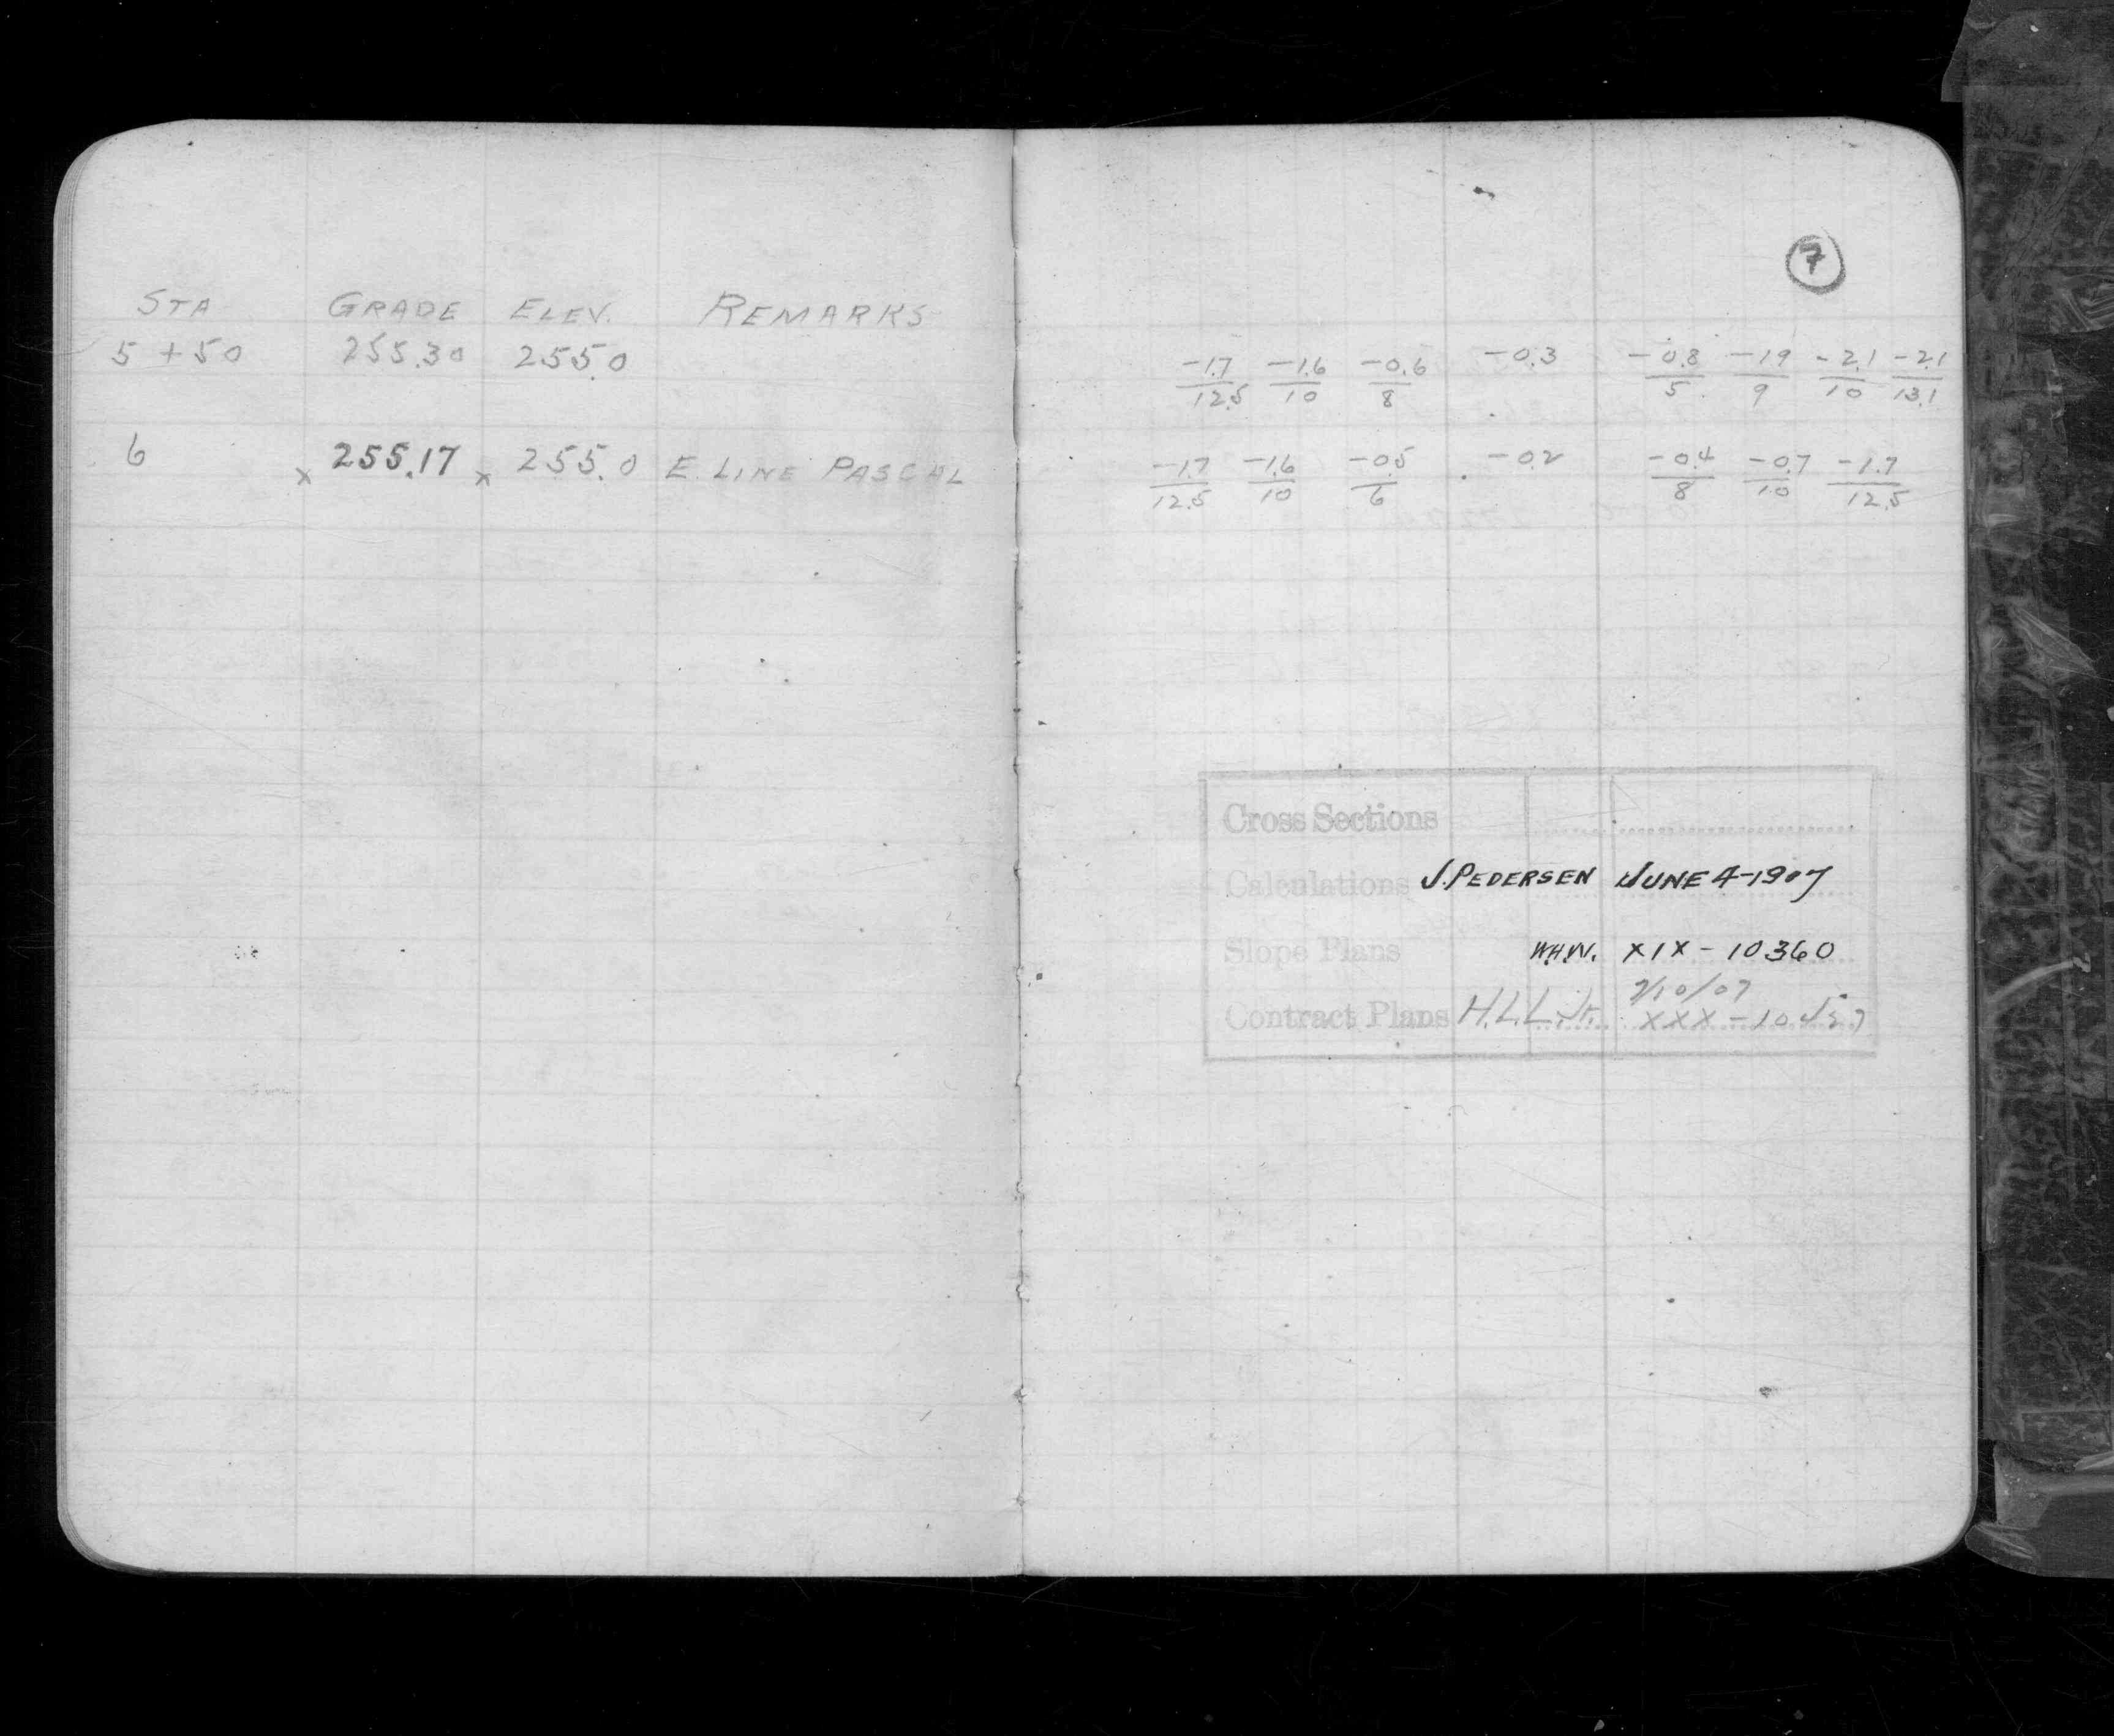 STA GRADE ELEV. REMARKS
5 + 50 255.30 255.0
6 x 255.17 x 255.0 E. LINE PASCAL
7
-1.7 -1.6 -0.6 -0.3 -0.8 -1.9 -2.1 -2.1
12.5 10 8 5 9 10 13.1
-1.7 -1.6 -0.5 -0.2 -0.4 -0.7 -1.7
12.5 10 6 8 10 12.5
Cross Sections
Calculations J. PEDERSEN JUNE 4-1907
Slope Plans W.H.W. XIX - 10360
7/10/07
Contract Plans H.L.L. Jr. XXX - 10